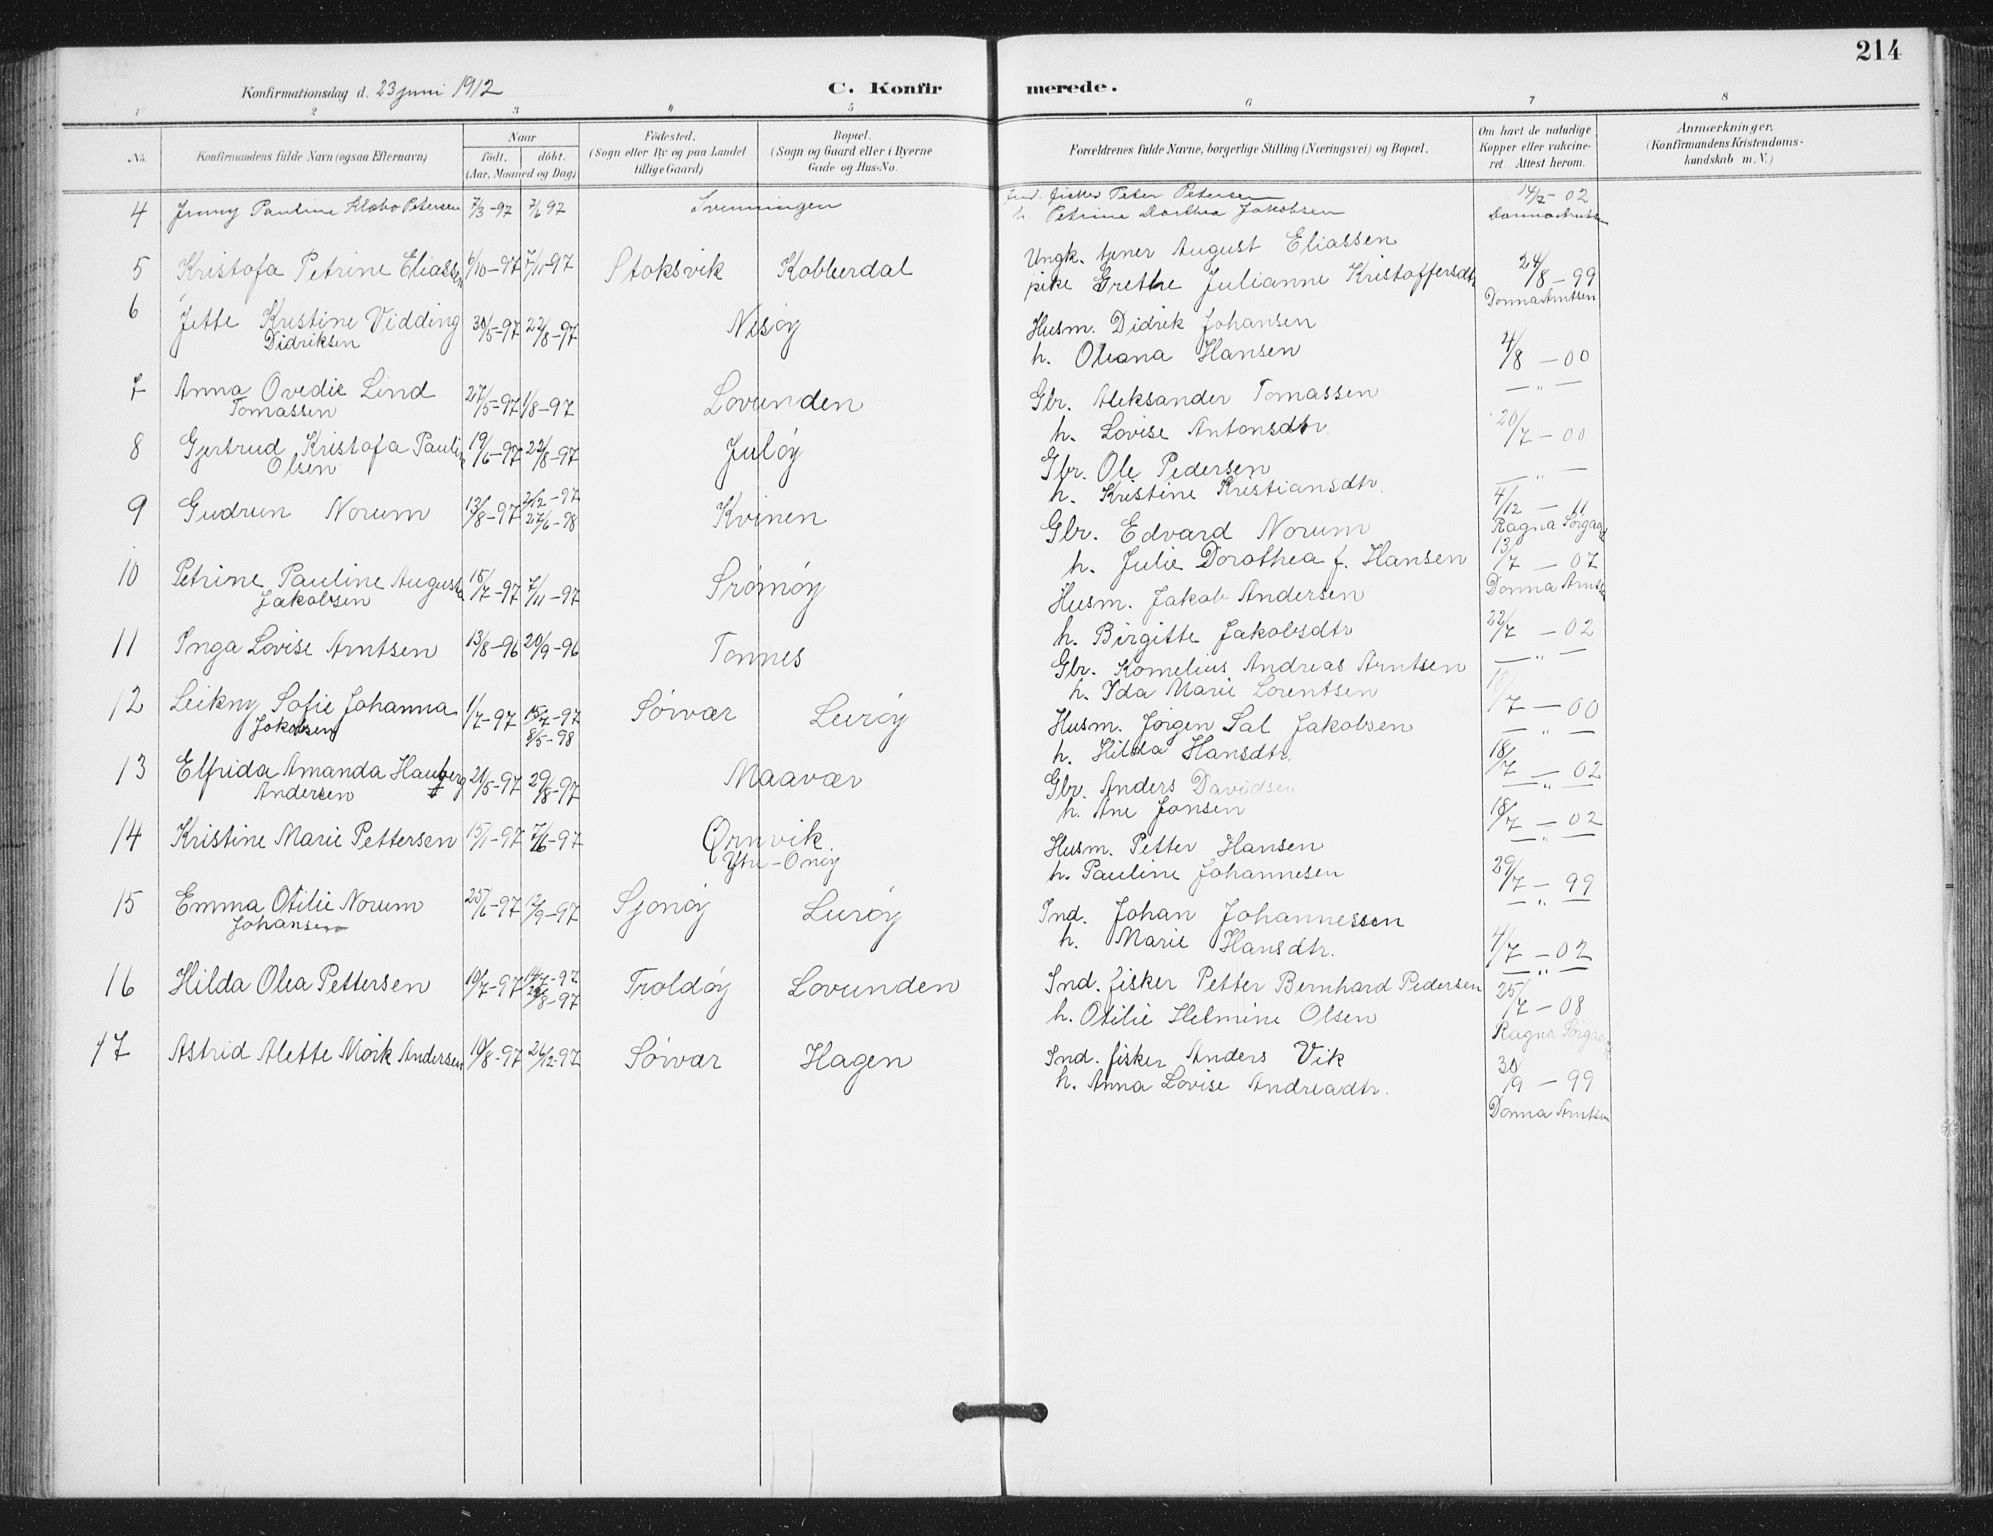 214
Konfirmationsdag d. 23 juni 1912
C. Konfirmerede.
1 2 3 4 5 6 7 8
No.
Konfirmandens fulde Navn (ogsaa Efternavn)
Naar
födt. döbt.
(Aar, Maaned og Dag)
Födested.
(Sogn eller By og paa Landet
tillige Gaard)
Bopæl.
(Sogn og Gaard eller i Byerne
Gade og Hus-No.
Forældrenes fulde Navne, borgerlige Stilling (Næringsvei) og Bopæl.
Om havt de naturlige
Kopper eller vakcine-
ret. Attest herom.
Anmærkninger.
(Konfirmandens Kristendoms-
kundskab m. V.)
4 Jenny Pauline Klæbo Petersen 7/3-97 7/6 97 Svenningen Ind. fisker Peter Petersen 14/7-02
h. Petrine Dorthea Jakobsen
5 Kristofa Petrine Eliassen 6/10-97 7/11-97 Stoksvik Kobberdal Ungk. tjener August Eliassen
pike Grethe Julianne Kristoffersdtr 24/8-99
Donna Arntsen
6 Jette Kristine Vidding 30/5-97 22/8-97 Nesøy Husm. Didrik Johansen
Didriksen h. Oleana Hansen 4/8-00
— " —
7 Anna Ovedie Lind 27/5-97 1/8-97 Lovunden Gbr. Aleksander Tomassen
Tomassen h. Lovise Antonsdtr. 20/7-00
— " —
8 Gjertrud Kristofa Pauline 19/6-97 22/8-97 Juløy Gbr. Ole Pedersen
Olsen h. Kristine Kristiansdtr.
9 Gudrun Norum 13/8-97 2/12-97 Kvinen Gbr. Edvard Norum 4/12-11
27/6-98 h. Julie Dorothea f. Hansen Ragna Sørgaard
10 Petrine Pauline Augusta 15/7-97 7/11-97 Srømøy Husm. Jakob Andersen 13/7-07
Jakobsen h. Birgitte Jakobsdtr Donna Arntsen
11 Inga Lovise Arntsen 13/8-96 20/9-96 Tonnes Gbr. Kornelius Andreas Arntsen 22/7-02
h. Ida Marie Lorentsen — " —
12 Leikny Sofie Johanna 1/7-97 18/7-97 Sørvær Lurøy Husm. Jørgen Sal Jakobsen 18/7-00
Jakobsen 8/5-98 h. Hilda Hansdtr. — " —
13 Elfrida Amanda Hauberg 21/5-97 29/8-97 Maavær Gbr. Anders Davidsen 18/7-02
Andersen h. Ane Jonsen — " —
14 Kristine Marie Pettersen 15/1-97 7/6-97 Ørnvik. Husm. Petter Hansen 18/7-02
Ytre-Onøy h. Pauline Johannesen — " —
15 Emma Otilie Norum 25/6-97 12/9-97 Sjonøy Lurøy Ind. Johan Johannessen 29/7-99
Johansen h. Marie Hansdtr. — " —
16 Hilda Olea Pettersen 10/7-97 14/7-97 Troldøy Lovunden Ind. fisker Petter Bernhard Pedersen 4/7-02
29/8-97 h. Otilie Helmine Olsen — " —
25/7-08
Ragna Sørgaard
17 Astrid Alette Moik Andersen 10/8-97 26/12-97 Sørvær Hagen Ind. fisker Anders Vik 30/9-99
h. Anna Lovise Andreadtr. Donna Arntsen